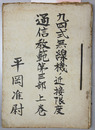 九四式無線機ノ近接限度
通信教範第三部上巻
平岡准尉